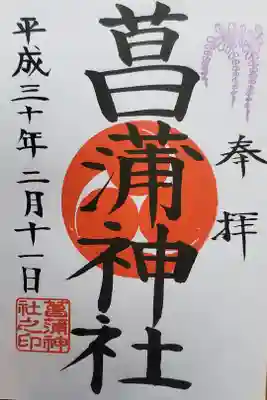 奉拝
菖蒲神社
平成三十年二月十一日
菖蒲神
社之印